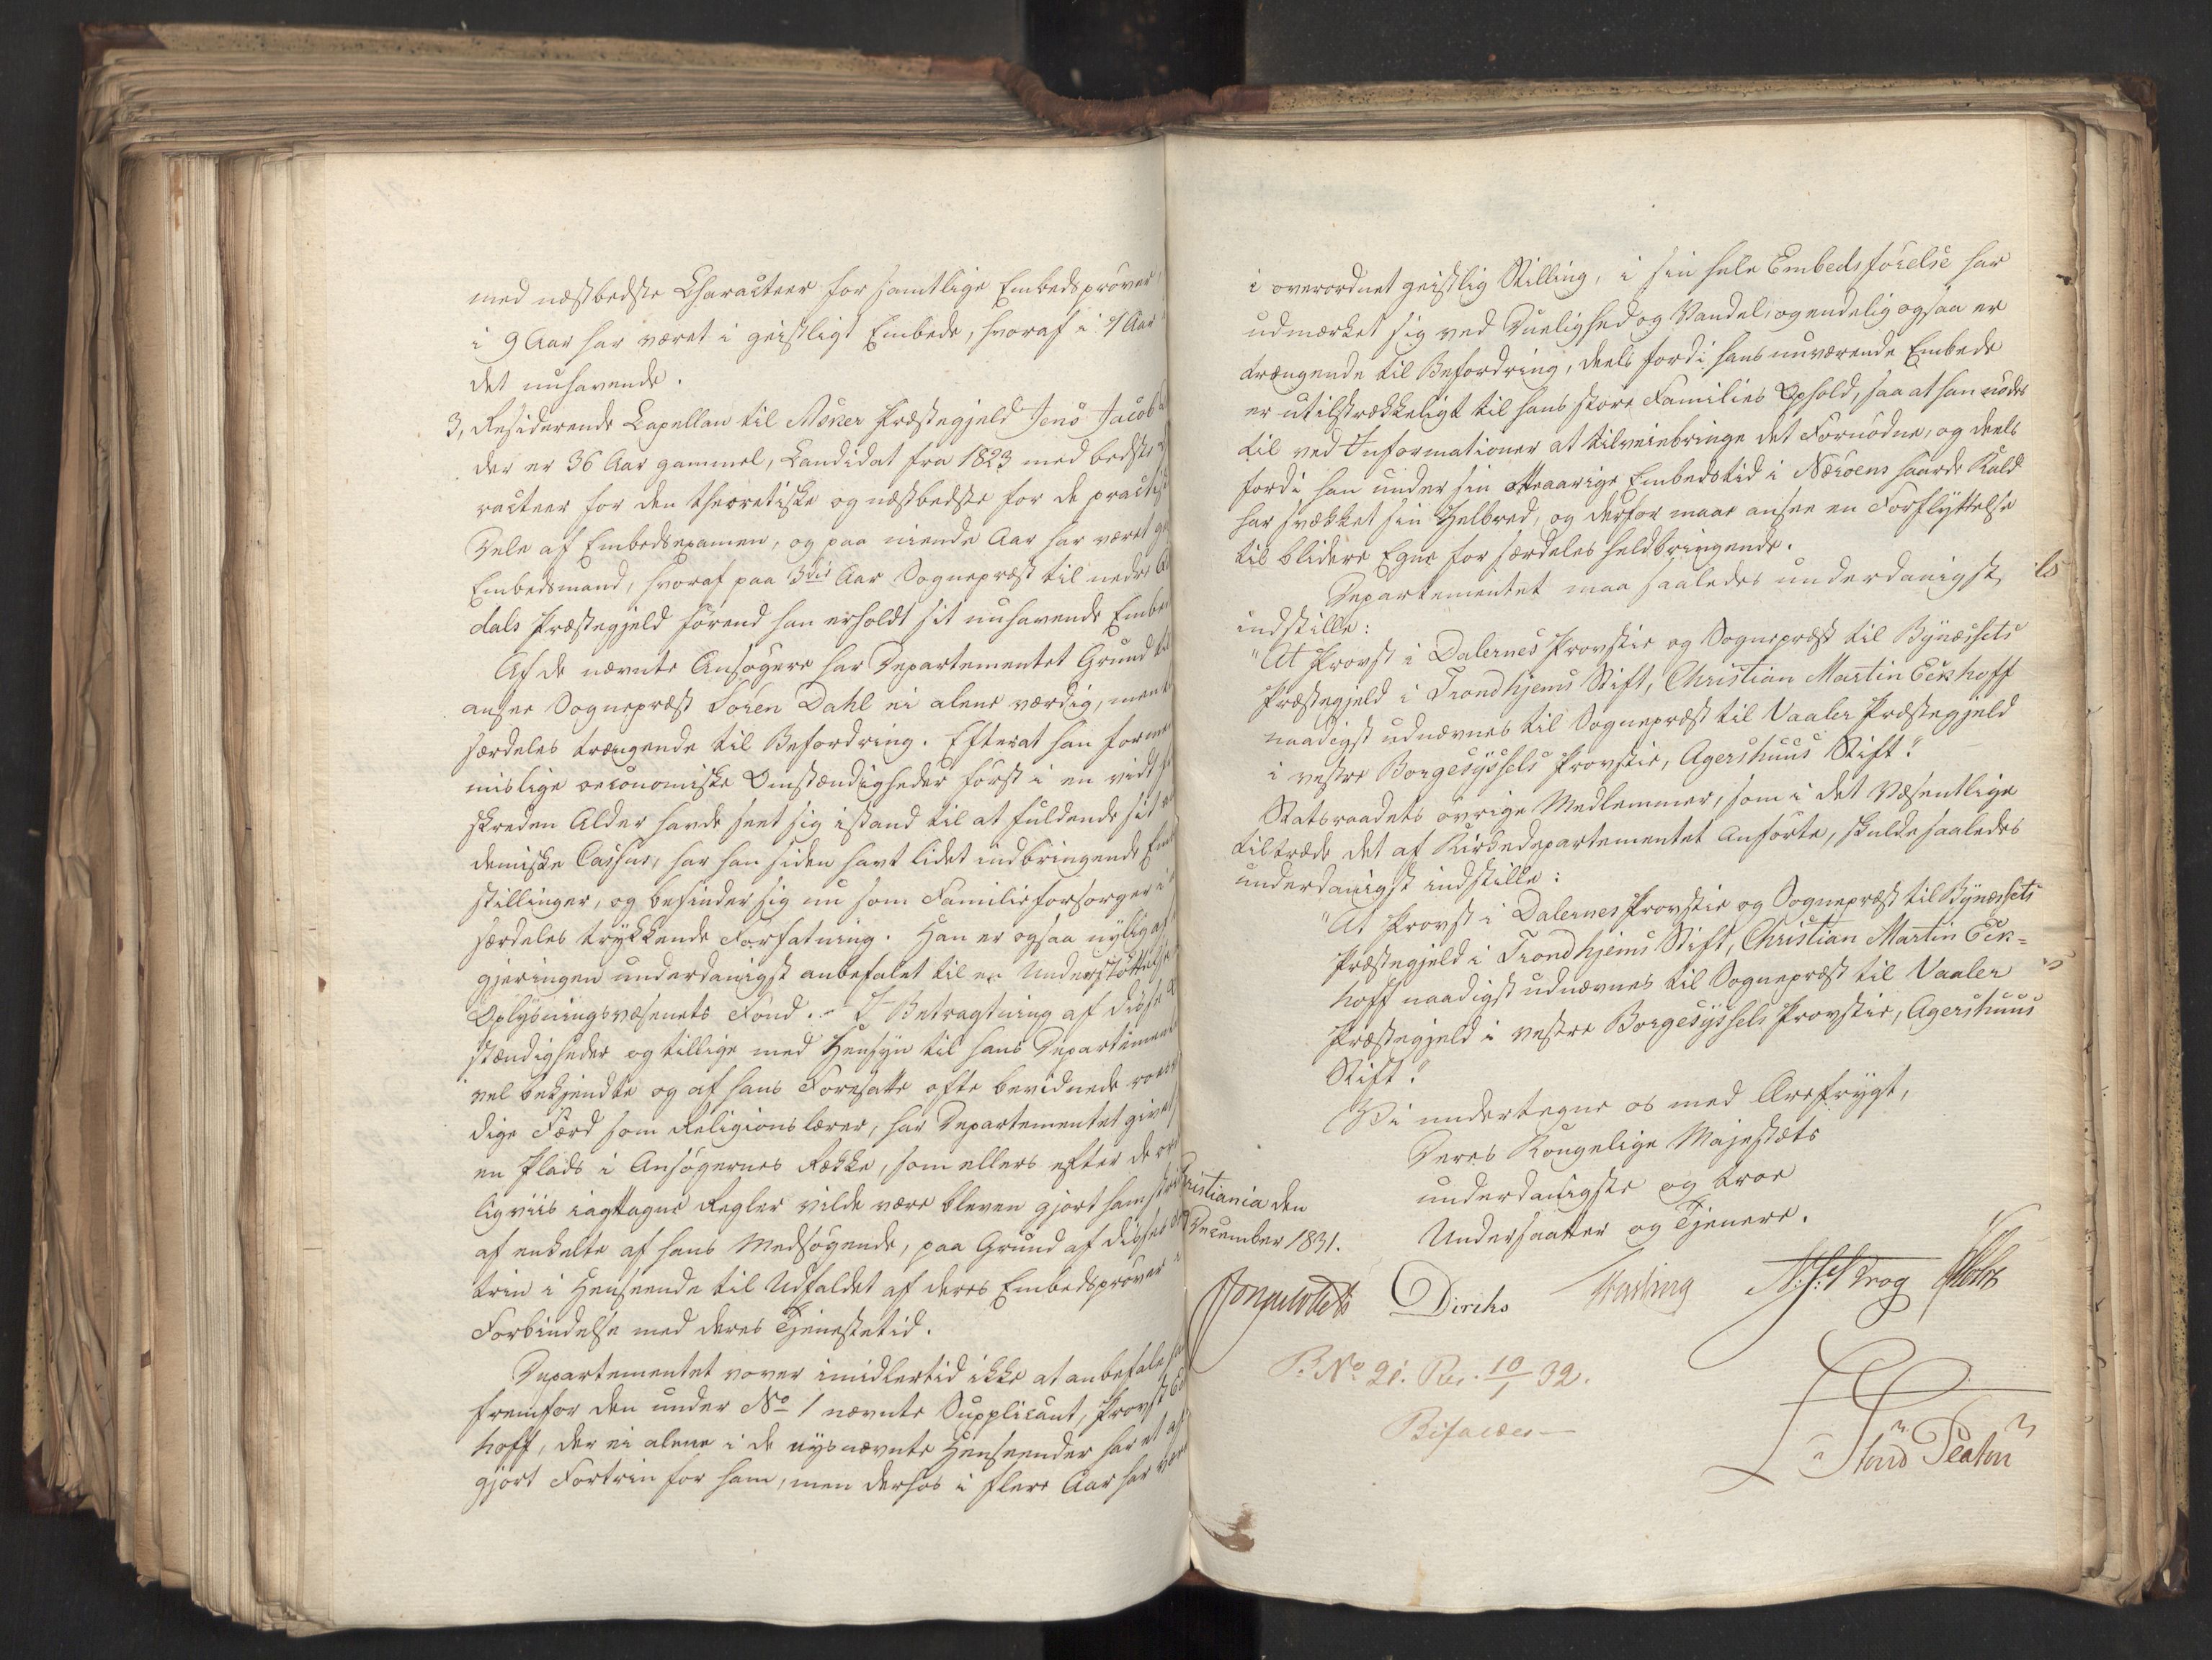 med næstbedste Characteer for samtlige Embedsprøver,
i 9 Aar har været i geistligt Embede, hvoraf i 4 Aar
det nuhavende.
3, Residerende Capellan til Asker Præstegjeld Jens Jacob
der er 36 Aar gammel, Candidat fra 1823 med bedste
racteer for den theoretiske og næstbedste for de practisk
Dele af Embedsexamen, og paa niende Aar har været
Embedsmand, hvoraf paa 3die Aar Sognepræst til nedre
dals Præstegjeld førend han erholdt sit nuhavende Embe
Af de nævnte Ansøgere har Departementet Grund til
ansee Sognepræst Søren Dahl ei alene værdig, men
særdeles trængende til Befordring. Efterat han formed
mislige oeconomiske Omstændigheder først i en vidt
skreden Alder havde seet sig istand til at fuldende sit
demiske Cursus, har han siden havt lidet indbringende Em
stillinger, og befinder sig nu som Familieforsørger i
særdeles trykkende Forfatning. Han er ogsaa nylig af
gjeringen underdanigst anbefalet til en Understøttelse
Oplysningsvæsenets Fond. - I Betragtning af disse
stændigheder og tillige med Hensyn til hans Departement
vel bekjendte og af hans Foresatte ofte bevidnede roes
dige Færd som Religionslærer, har Departementet givet
en Plads i Ansøgernes Række, som ellers efter de or
ligviis iagttagne Regler vilde være bleven gjort ham strid
af enkelte af hans Medsøgende, paa Grund af disses
trin i Henseende til Udfaldet af deres Embedsprøver i
Forbindelse med deres Tjenestetid.
Departementet vover imidlertid ikke at anbefale ham
fremfor den under No 1 nævnte Supplicant, Provst
hoff, der ei alene i de nysnævnte Henseender har et af
gjort Fortrin for ham, men derhos i flere Aar har vær
i overordnet geistlig Stilling, i sin hele Embedsførelse har
udmærket sig ved Duelighed og Vandel, og endelig ogsaa er
trængende til Befordring, deels fordi hans nuværende Embede
er utilstrækkeligt til hans store Families Ophold, saa at han nødes
til ved Informationer at tilveiebringe det Fornødne, og deels
fordi han under sin otteaarige Embedstid i Nærøens haarde Kald
har svækket sin Helbred, og derfor maae ansee en Forflyttelse
til blidere Egne for særdeles heldbringende.
Departementet maa saaledes underdanigst
indstille:
"At Provst i Dalernes Provstie og Sognepræst til Bynæssets
Præstegjeld i Trondhjems Stift, Christian Martin Eckhoff
naadigst udnævnes til Sognepræst til Vaaler Præstegjeld
i vestre Borgesyssels Provstie, Agershuus Stift."
Statsraadets øvrige Medlemmer, som i det Væsentlige
tiltræde det af Kirkedepartementet Anførte, skulde saaledes
underdanigst indstille:
"At Provst i Dalernes Provstie og Sognepræst til Bynæssets
Præstegjeld i Trondhjems Stift, Christian Martin Eck=
hoff naadigst udnævnes til Sognepræst til Vaaler
Præstegjeld i vestre Borgesyssels Provstie, Agershuus
Stift."
Vi undertegne os med Ærefrygt,
Deres Kongelige Majestæts
underdanigste og troe
Undersaatter og Tjenere.
ristiania den
December 1831.
Diriks
Krog
P. No 21. Res. 10/1 32.
Bifaldes